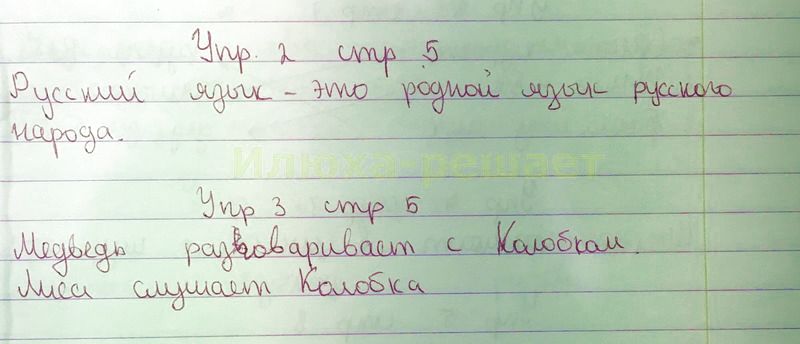 Упр. 2 стр 5
Русский язык - это родной язык русского
народа.
Илюха-решает
Упр 3 стр 5
Медведь разговаривает с Колобком.
Лиса слушает Колобка